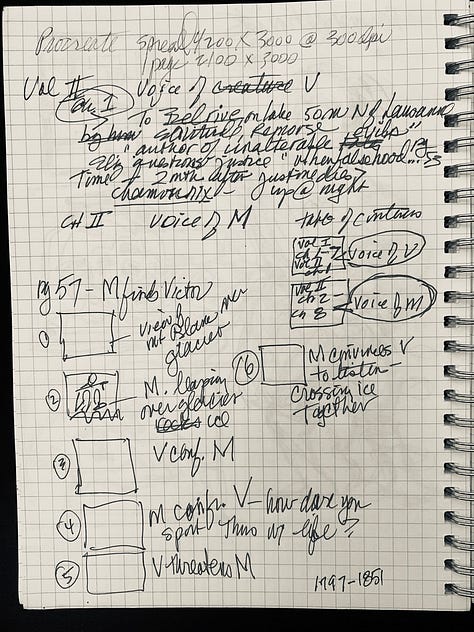 Procreate Spread 4200 X 3000 @ 300 dpi
page 2100 X 3000
Vol II Voice of creature V
ch. I
To Belrive on lake 50m N of Lausanne
Spiritual Response
"author of unalterable evils"
Eliz questions justice "when falsehood
Time # 2 mth after Justine dies
Chamounix - up @ night
CH II Voice of M
Table of contents
Vol I
ch 1-7
Vol II
ch 1
Voice of V
Vol II
ch 2-
ch 8
Voice of M
pg 57 - M finds Victor
1 View of
mt Blanc over
glacier
2 M. leaping
over glacier
rocks ice
3 V conf. M
4 M confr. V - how dare you
sport thus w life?
5 V threatens M
6 M convinces V
to listen -
crossing ice
together
1797-1851